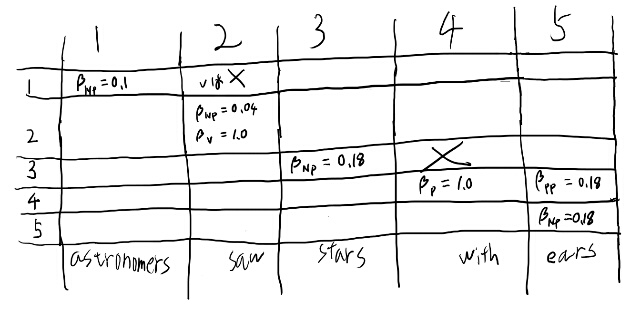 1 2 3 4 5
1 βNP = 0.1 X
βNP = 0.04
2 βV = 1.0
3 βNP = 0.18 X
4 βP = 1.0 βPP = 0.18
5 βNP = 0.18
astronomers saw stars with ears